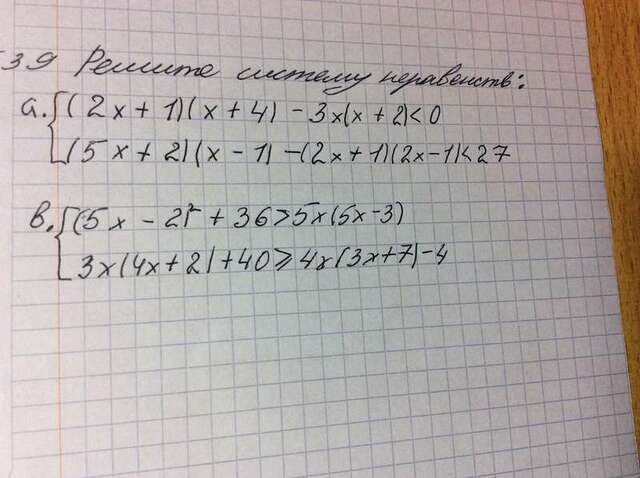 539 Решите систему неравенств:
а. { (2x + 1)(x + 4) - 3x(x + 2) < 0
(5x + 2)(x - 1) - (2x + 1)(2x - 1) < 27
в. { (5x - 2)² + 36 > 5x(5x - 3)
3x(4x + 2) + 40 ⩾ 4x(3x + 7) - 4